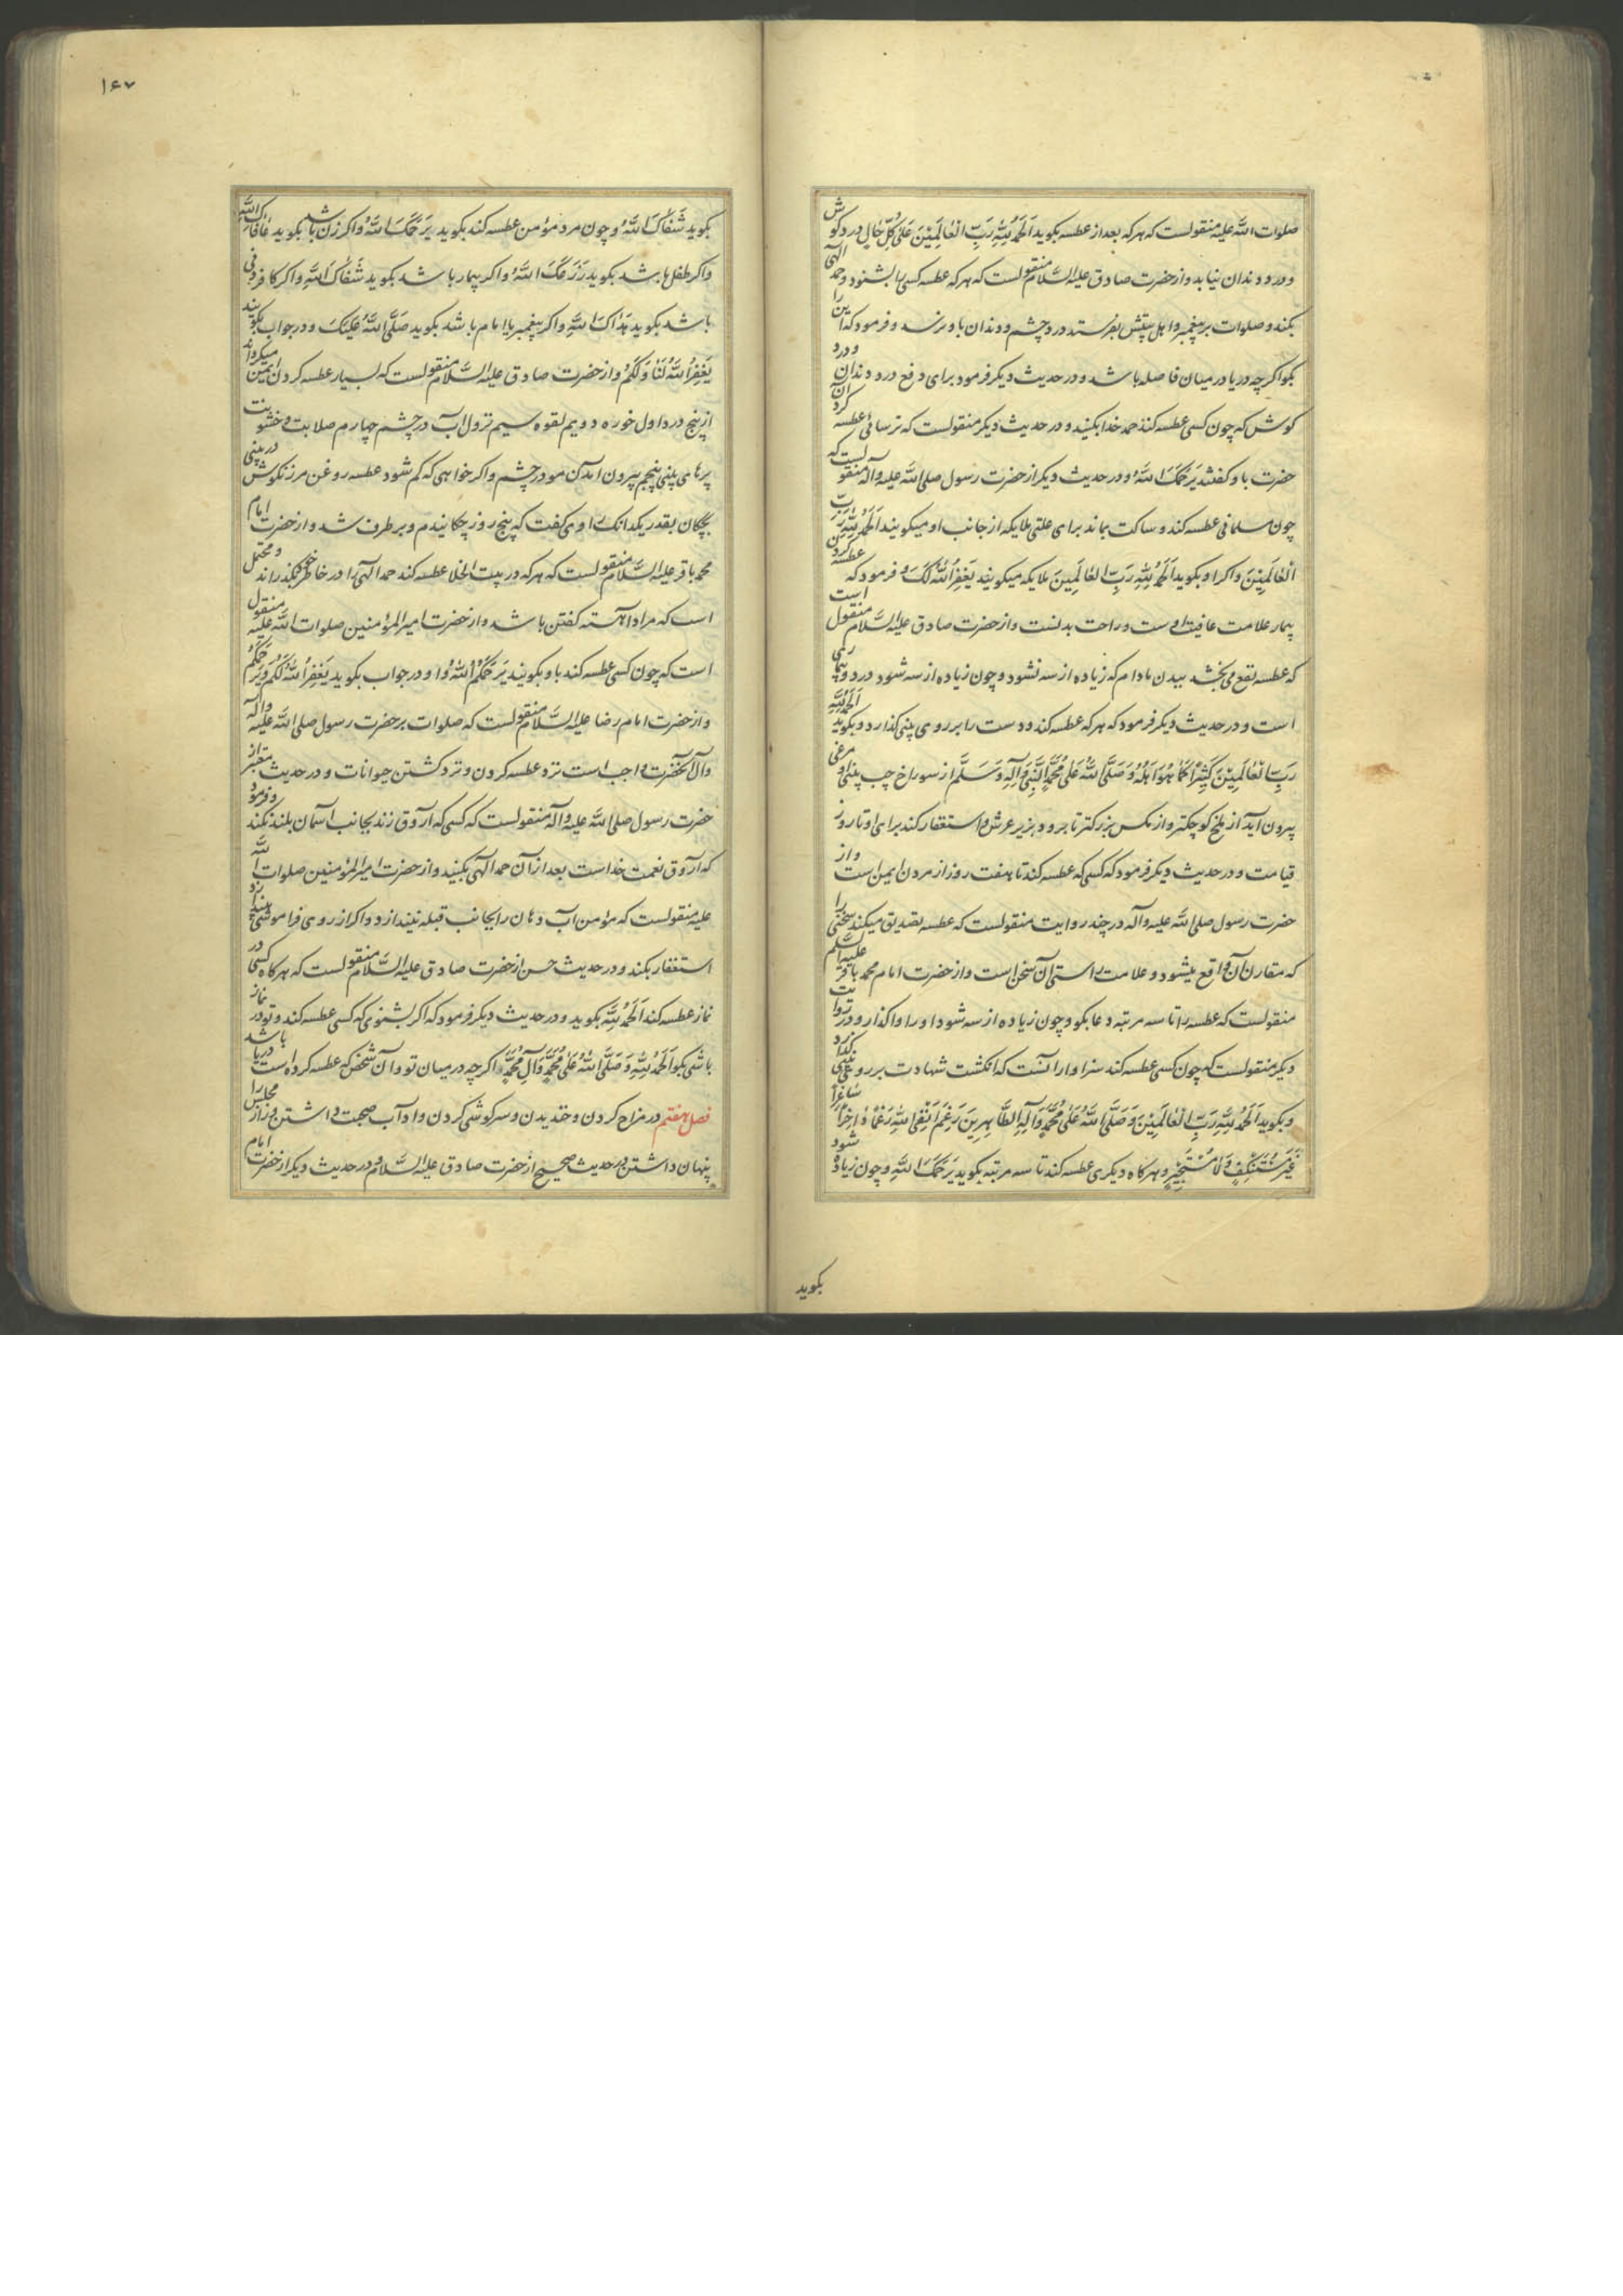 صلوات الله علیه منقولست که هر که بعد از عطسه بکوید اَلحَمدُ لِلّهِ رَبِّ العالَمِینَ عَلی کُلِّ حالٍ درد کوش
و درد دندان نیابد و از حضرت صادق علیه السلام منقولست که هر که عطسه کسی را بشنود و حمد الهی
بکند و صلوات بر پیغمبر و اهل بیتش بفرستد درد چشم و دندان باو نرسد و فرمود که این را
بکو اکر چه دریا در میان فاصله باشد و در حدیث دیکر فرمود برای دفع درد دندان و درد
کوش که چون کسی عطسه کند حمد خدا بکنید و در حدیث دیکر منقولست که ترسائی عطسه کرد آن
حضرت باو کفتند یَرحَمُکَ اللهُ و در حدیث دیکر از حضرت رسول صلی الله علیه وآله منقولست که
چون مسلمانی عطسه کند و ساکت بماند برای علتی ملایکه از جانب او میکویند اَلحَمدُ لِلّهِ رَبِّ
العالَمِینَ و اکر او بکوید اَلحَمدُ لِلّهِ رَبِّ العالَمِینَ ملایکه میکویند یَغفِرُ اللهُ لَکَ و فرمود که عطسه کردن
بیمار علامت عافیت اوست و راحت بدنست و از حضرت صادق علیه السلام منقول است
که عطسه نفع می بخشد ببدن مادام که زیاده از سه نشود و چون زیاده از سه شود درد و بیماری
است و در حدیث دیکر فرمود که هر که عطسه کند و دست را بر روی بینی کذارد و بکوید اَلحَمدُ لِلّهِ
رَبِّ العالَمِینَ کَثِیراً کَما هُوَ اَهلُهُ وَ صَلَّی اللهُ عَلی مُحَمَّدٍ النَّبِیِّ وَآلِهِ وَسَلَّمَ از سوراخ چپ بینی او مرغی
بیرون آید از ملخ کوچکتر و از مکس بزرکتر تا برود بزیر عرش و استغفار کند برای او تا روز
قیامت و در حدیث دیکر فرمود که کسی که عطسه کند تا هفت روز از مردن ایمن است و از
حضرت رسول صلی الله علیه وآله در چند روایت منقولست که عطسه تصدیق میکند سخنی را
که مقارن آن واقع میشود و علامت راستی آن سخن است و از حضرت امام محمد باقر علیه السلم
منقولست که عطسه را تا سه مرتبه دعا بکو و چون زیاده از سه شود او را واکذار و در روایت
دیکر منقولست که چون کسی عطسه کند سزاوار آنست که انکشت شهادت بر روی بینی کذارد
و بکوید اَلحَمدُ لِلّهِ رَبِّ العالَمِینَ وَ صَلَّی اللهُ عَلی مُحَمَّدٍ وَآلِهِ الطّاهِرِینَ رَغِمَ اَنفِی لِلّهِ رَغماً داخِراً صاغِراً
غَیرَ مُستَنکِفٍ وَلا مُستَحسِرٍ و هر کاه دیکری عطسه کند تا سه مرتبه بکوید یَرحَمُکَ اللهُ و چون زیاده شود
بکوید
۱۶۷
بکوید شَفاکَ اللهُ و چون مرد مؤمن عطسه کند بکوید یَرحَمُکَ اللهُ و اکر زن باشد بکوید عافاکِ اللهُ
و اکر طفل باشد بکوید زَرَعَکَ اللهُ و اکر بیمار باشد بکوید شَفاکَ اللهُ و اکر کافر ذمی
باشد بکوید هَداکَ اللهُ و اکر پیغمبر یا امام باشد بکوید صَلَّی اللهُ عَلَیکَ و در جواب بکویند
یَغفِرُ اللهُ لَنا وَلَکُم و از حضرت صادق علیه السلام منقولست که بسیار عطسه کردن ایمن میکرداند
از پنج درد اول خوره دویم لقوه سیم نزول آب در چشم چهارم صلابت و خشونت
پرهای بینی پنجم بیرون آمدن مو در چشم و اکر خواهی که کم شود عطسه روغن مرزنکوش در بینی
بچکان بقدر یکدانک راوی کفت که پنج روز چکانیدم و بر طرف شد و از حضرت امام
محمد باقر علیه السلام منقولست که هر که در بیت الخلا عطسه کند حمد الهی را در خاطر خود بگذراند و محتمل
است که مراد آهسته کفتن باشد و از حضرت امیر المؤمنین صلوات الله علیه منقول
است که چون کسی عطسه کند باو بکویند یَرحَمُکُمُ اللهُ و او در جواب بکوید یَغفِرُ اللهُ لَکُم وَیَرحَمُکُم
و از حضرت امام رضا علیه السلام منقولست که صلوات بر حضرت رسول صلی الله علیه وآله
وآل آنحضرت واجب است نزد عطسه کردن و نزد کشتن حیوانات و در حدیث معتبر از
حضرت رسول صلی الله علیه وآله منقولست که کسی که آروق زند بجانب آسمان بلند نکند و فرمود
که آروق نعمت خداست بعد از آن حمد الهی بکنید و از حضرت امیر المؤمنین صلوات الله
علیه منقولست که مؤمن آب دهان را بجانب قبله نیندازد و اکر از روی فراموشی بیندازد
استغفار بکند و در حدیث حسن از حضرت صادق علیه السلام منقولست که هر کاه کسی در
نماز عطسه کند اَلحَمدُ لِلّهِ بکوید و در حدیث دیکر فرمود که اکر بشنوی که کسی عطسه کند و تو در نماز
باشی بکو اَلحَمدُ لِلّهِ وَ صَلَّی اللهُ عَلی مُحَمَّدٍ وَآلِ مُحَمَّدٍ اکر چه در میان تو و آن شخص که عطسه کرده است دریا باشد
فصل هفتم در مزاح کردن و خندیدن و سرکوشی کردن و آداب صحبت داشتن و راز مجلس را
پنهان داشتن در حدیث صحیح از حضرت صادق علیه السلام و در حدیث دیکر از حضرت امام